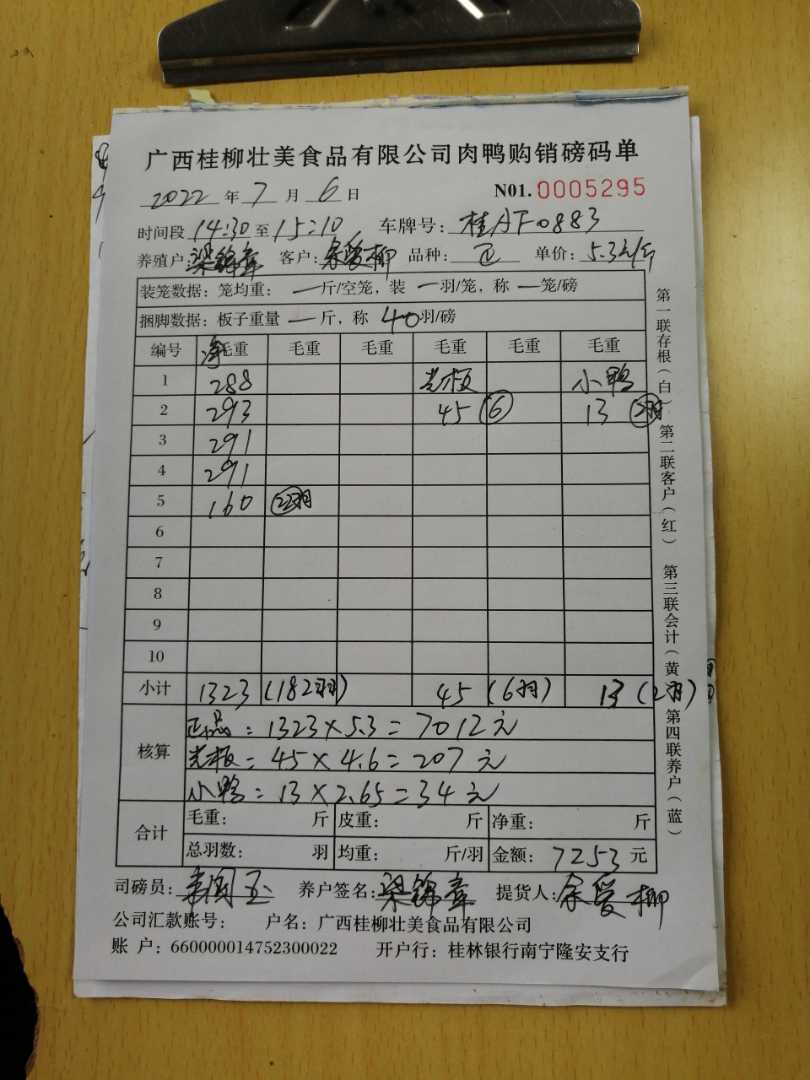 广西桂柳壮美食品有限公司肉鸭购销磅码单
2022 年 7 月 6 日 N01. 0005295
时间段 14:30 至 15:10 车牌号: 桂AF0883
养殖户: 梁锦章 客户: 余爱柳 品种: 单价: 5.3元/斤
装笼数据: 笼均重: — 斤/空笼, 装 — 羽/笼, 称 — 笼/磅
捆脚数据: 板子重量 — 斤, 称 40 羽/磅
编号 净毛重 毛重 毛重 毛重 毛重 毛重
1 288 光板 小鸭
2 293 45 (6) 13 (2羽)
3 291
4 291
5 160 (22羽)
6
7
8
9
10
小计 1323 (182羽) 45 (6羽) 13 (2羽)
核算 正品: 1323×5.3=7012元
光板=45×4.6=207元
小鸭=13×2.65=34元
合计 毛重: 斤 皮重: 斤 净重: 斤
总羽数: 羽 均重: 斤/羽 金额: 7253 元
司磅员: 养户签名: 梁锦章 提货人: 余爱柳
公司汇款账号: 户名: 广西桂柳壮美食品有限公司
账 户: 660000014752300022 开户行: 桂林银行南宁隆安支行
第一联存根(白) 第二联客户(红) 第三联会计(黄) 第四联养户(蓝)